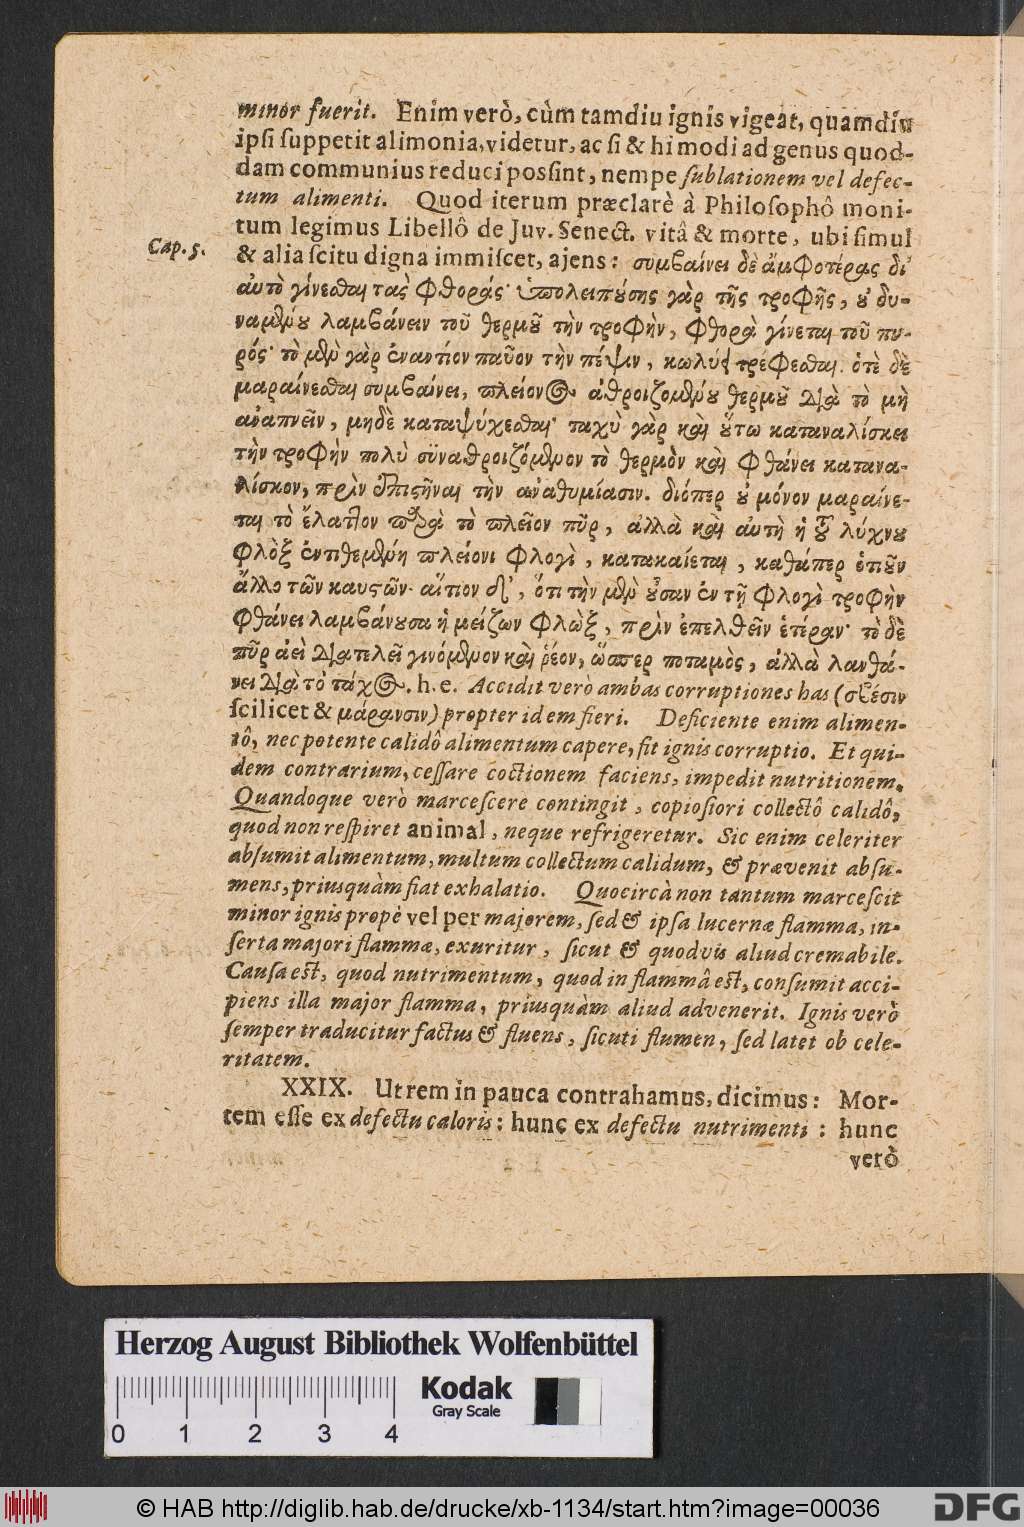 minor fuerit. Enim verò, cùm tamdiu ignis vigeat, quamdiu
ipſi ſuppetit alimonia, videtur, ac ſi & hi modi ad genus quod-
dam communius reduci poſſint, nempe ſublationem vel defec-
tum alimenti. Quod iterum præclarè à Philoſophô moni-
tum legimus Libellô de Juv. Senect. vitâ & morte, ubi ſimul
Cap. 5.
& alia ſcitu digna immiſcet, ajens: συμβαίνει δὲ ἀμφοτέρας δι'
αὐτὸ γίνεσθαι τὰς φθοράς· ὑπολειπούσης γὰρ τῆς τροφῆς, οὐ δυ-
ναμένου λαμβάνειν τοῦ θερμοῦ τὴν τροφὴν, φθορὰ γίνεται τοῦ πυ-
ρός· τὸ μὲν γὰρ ἐναντίον παῦον τὴν πέψιν, κωλύει τρέφεσθαι. ὁτὲ δὲ
μαραίνεσθαι συμβαίνει, πλείονος ἀθροιζομένου θερμοῦ διὰ τὸ μὴ
ἀναπνεῖν, μηδὲ καταψύχεσθαι· ταχὺ γὰρ καὶ οὕτω καταναλίσκει
τὴν τροφὴν πολὺ συναθροιζόμενον τὸ θερμὸν καὶ φθάνει κατανα-
λίσκον, πρὶν ἐπιστῆναι τὴν ἀναθυμίασιν. διόπερ οὐ μόνον μαραίνε-
ται τὸ ἔλαττον παρὰ τὸ πλεῖον πῦρ, ἀλλὰ καὶ αὐτὴ ἡ τοῦ λύχνου
φλὸξ ἐντιθεμένη πλείονι φλογὶ, κατακαίεται, καθάπερ ὁτιοῦν
ἄλλο τῶν καυστῶν· αἴτιον δ', ὅτι τὴν μὲν οὖσαν ἐν τῇ φλογὶ τροφὴν
φθάνει λαμβάνουσα ἡ μείζων φλὼξ, πρὶν ἐπελθεῖν ἑτέραν· τὸ δὲ
πῦρ ἀεὶ διατελεῖ γινόμενον καὶ ῥέον, ὥσπερ ποταμὸς, ἀλλὰ λανθά-
νει διὰ τὸ τάχος. h. e. Accidit verò ambas corruptiones has (σβέσιν
ſcilicet & μάρανσιν) propter idem fieri. Deficiente enim alimen-
tô, nec potente calidô alimentum capere, fit ignis corruptio. Et qui-
dem contrarium, ceſſare coctionem faciens, impedit nutritionem.
Quandoque verò marceſcere contingit, copioſiori collectô calidô,
quod non reſpiret animal, neque refrigeretur. Sic enim celeriter
abſumit alimentum, multum collectum calidum, & prævenit abſu-
mens, priusquàm fiat exhalatio. Quocircà non tantum marceſcit
minor ignis propè vel per majorem, ſed & ipſa lucernæ flamma, in-
ſerta majori flammæ, exuritur, ſicut & quodvis aliud cremabile.
Cauſa eſt, quod nutrimentum, quod in flammâ eſt, conſumit acci-
piens illa major flamma, priusquàm aliud advenerit. Ignis verò
ſemper traducitur factus & fluens, ſicuti flumen, ſed latet ob cele-
ritatem.
XXIX. Ut rem in pauca contrahamus, dicimus: Mor-
tem eſſe ex defectu caloris: hunc ex defectu nutrimenti: hunc
verò
Herzog August Bibliothek Wolfenbüttel
Kodak
Gray Scale
0 1 2 3 4
© HAB http://diglib.hab.de/drucke/xb-1134/start.htm?image=00036
DFG